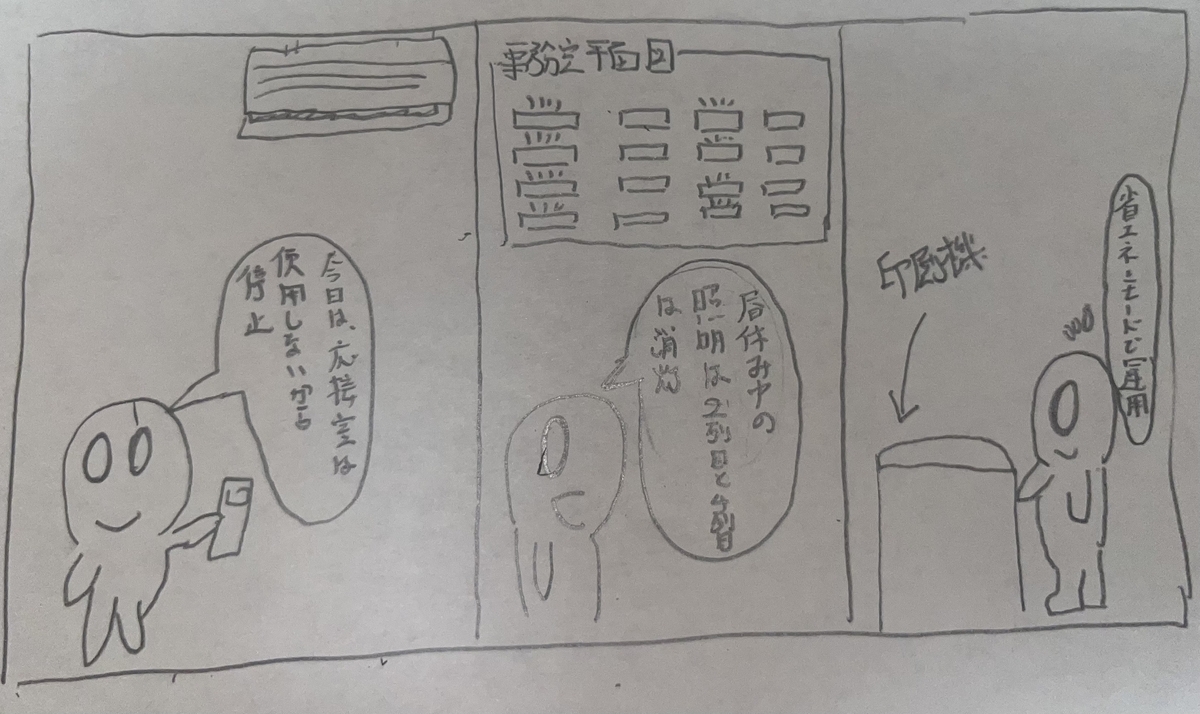 今日は、応接室は
使用しないから
停止
事務室平面図
昼休み中の
照明は2列目と4列目
は消灯
印刷機
省エネモードで運用